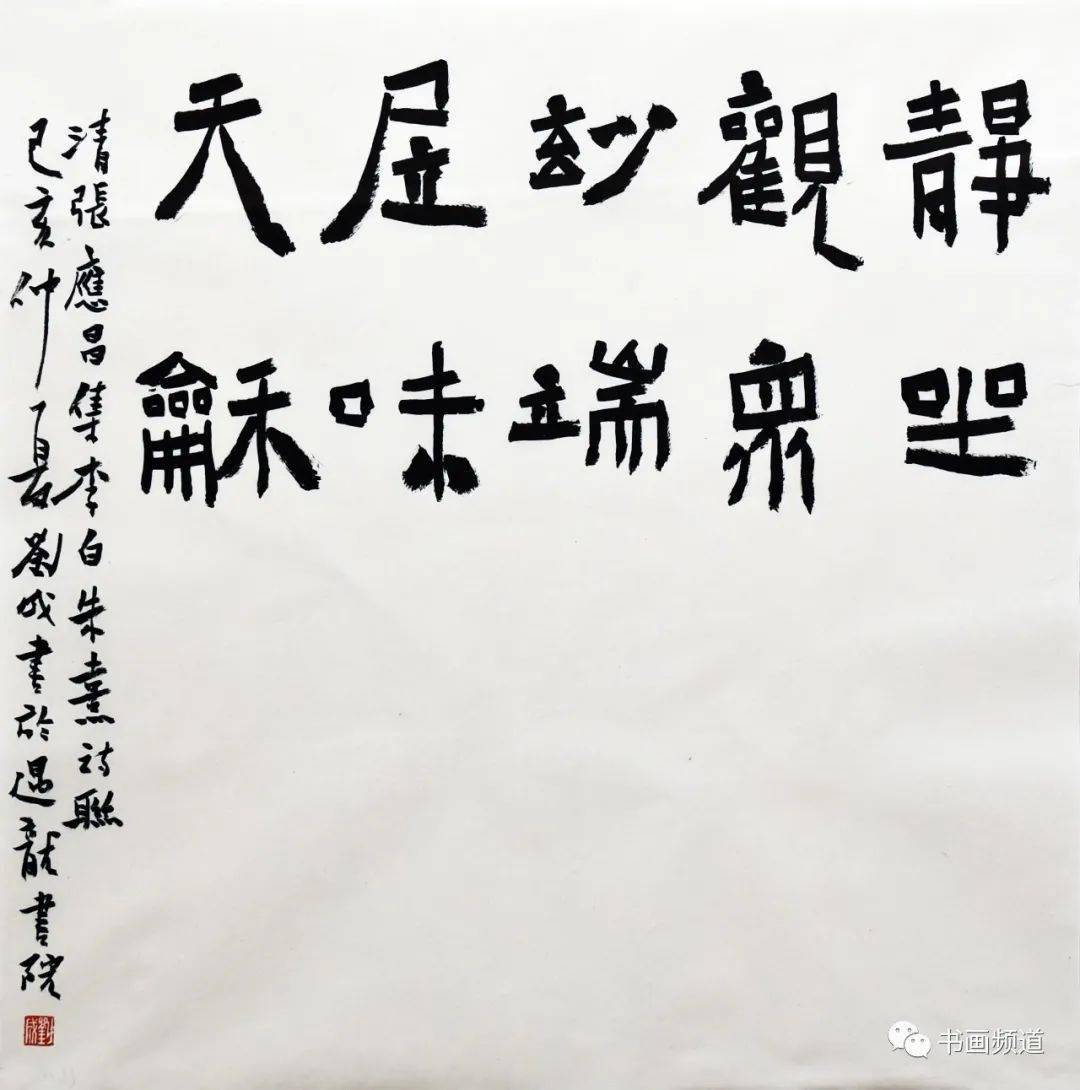 靜坐
觀眾
玅端
居味
天龢
清張應昌集李白朱熹詩聯
己亥仲夏劉成書於遇龍書院
劉成
书画频道